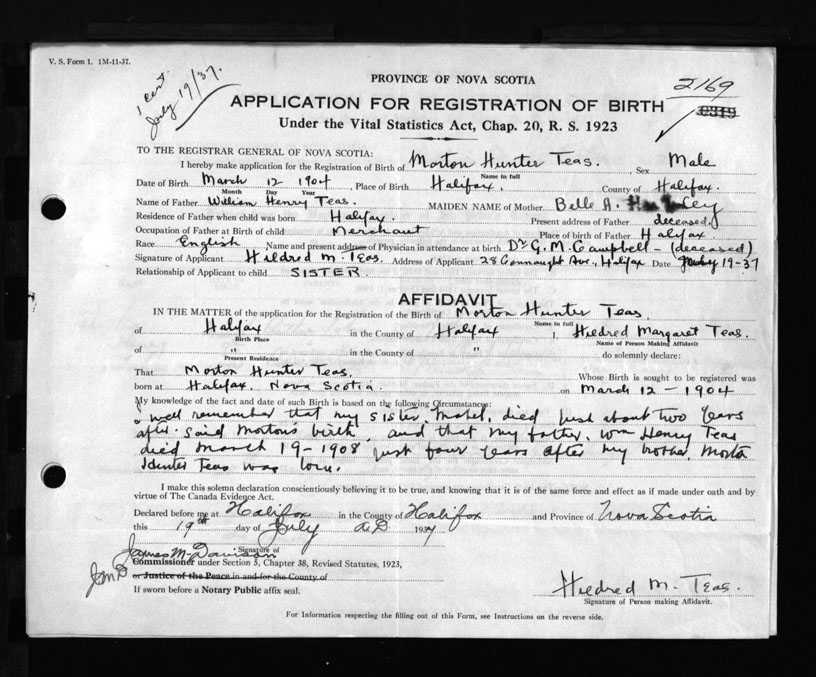 V. S. Form 1. 1M-11-37.
1 cert.
July 19/37.
PROVINCE OF NOVA SCOTIA
2169
APPLICATION FOR REGISTRATION OF BIRTH
Under the Vital Statistics Act, Chap. 20, R. S. 1923
TO THE REGISTRAR GENERAL OF NOVA SCOTIA:
I hereby make application for the Registration of Birth of Morton Hunter Teas. , Sex Male
Name in full
Date of Birth March 12 1904 , Place of Birth Halifax. County of Halifax.
Month Day Year
Name of Father William Henry Teas. MAIDEN NAME of Mother Belle A.
Residence of Father when child was born Halifax. Present address of Father deceased.
Occupation of Father at Birth of child Merchant Place of birth of Father Halifax
Race English Name and present address of Physician in attendance at birth Dr G. M. Campbell - (deceased)
Signature of Applicant Hildred M. Teas. Address of Applicant 28 Connaught Ave., Halifax Date July 19-37
Relationship of Applicant to child SISTER.
AFFIDAVIT
IN THE MATTER of the application for the Registration of the Birth of Morton Hunter Teas.
Name in full
of Halifax in the County of Halifax I, Hildred Margaret Teas.
Birth Place Name of Person Making Affidavit
of " in the County of " do solemnly declare:
Present Residence
That Morton Hunter Teas. Whose Birth is sought to be registered was
born at Halifax. Nova Scotia. on March 12 - 1904
My knowledge of the fact and date of such Birth is based on the following Circumstances:
I well remember that my sister Mabel, died just about two years
after said Morton's birth, and that my father, Wm Henry Teas
died March 19-1908 just four years after my brother, Morton
Hunter Teas was born.
I make this solemn declaration conscientiously believing it to be true, and knowing that it is of the same force and effect as if made under oath and by
virtue of The Canada Evidence Act.
Declared before me at Halifax in the County of Halifax and Province of Nova Scotia
this 19th day of July A.D. 1937
James M. Davison
Signature of
Commissioner under Section 5, Chapter 38, Revised Statutes, 1923,
JMD or Justice of the Peace in and for the County of
If sworn before a Notary Public affix seal.
Hildred M. Teas.
Signature of Person making Affidavit.
For Information respecting the filling out of this Form, see Instructions on the reverse side.